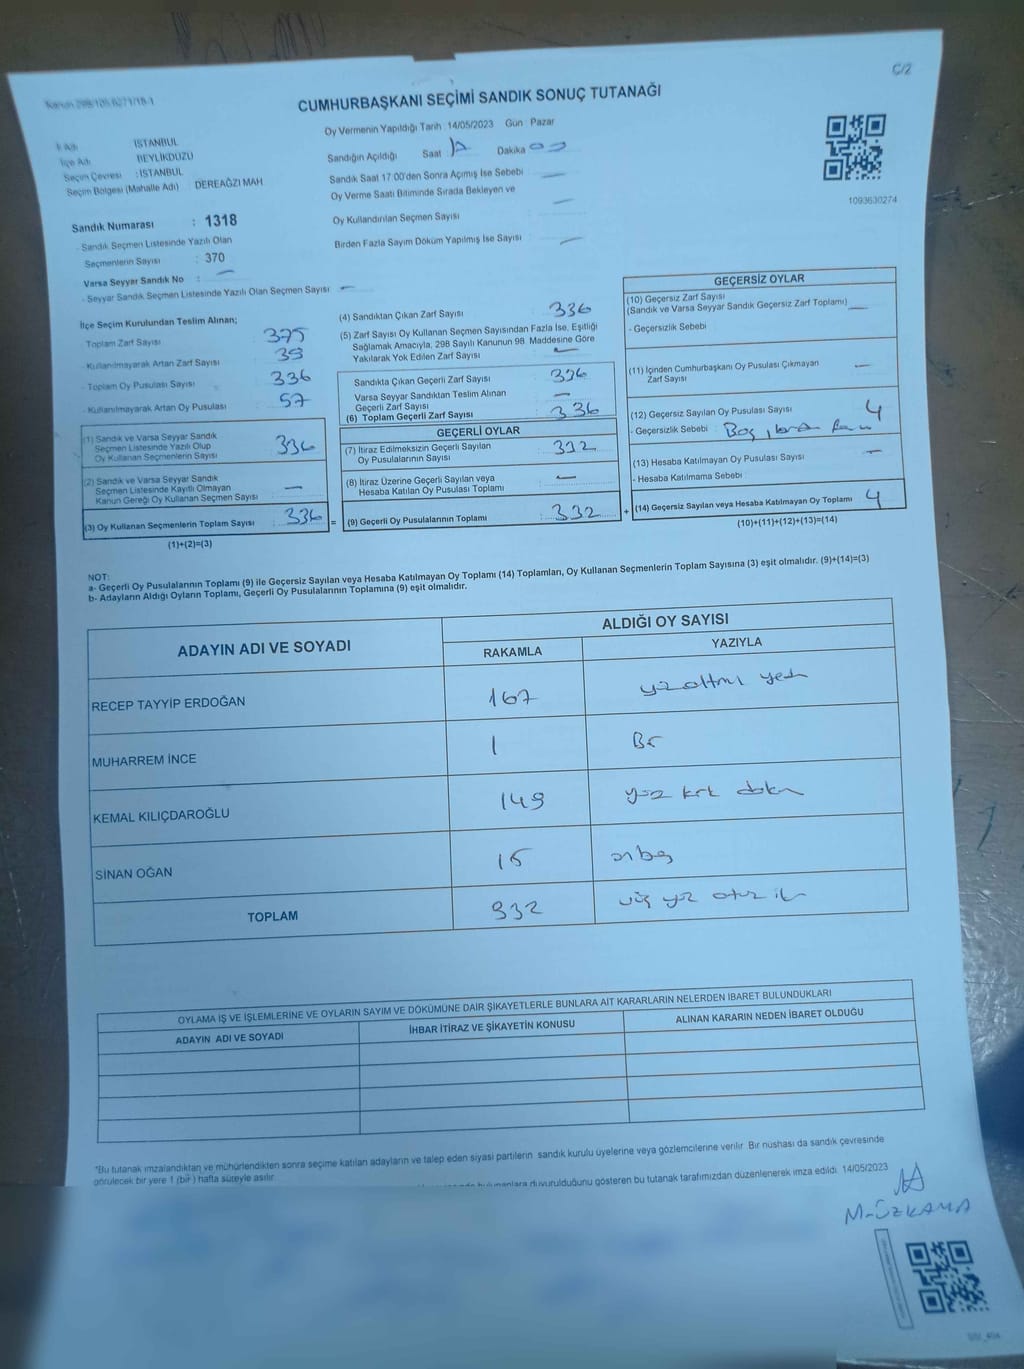 C/2
CUMHURBAŞKANI SEÇİMİ SANDIK SONUÇ TUTANAĞI
Oy Vermenin Yapıldığı Tarih : 14/05/2023 Gün Pazar
İl Adı İSTANBUL
İlçe Adı BEYLİKDÜZÜ
Seçim Çevresi : İSTANBUL
Seçim Bölgesi (Mahalle Adı) DEREAĞZI MAH
Sandığın Açıldığı Saat Dakika
Sandık Saat 17:00'den Sonra Açılmış İse Sebebi —
Oy Verme Saati Bitiminde Sırada Bekleyen ve
Oy Kullandırılan Seçmen Sayısı —
Birden Fazla Sayım Döküm Yapılmış İse Sayısı —
1093630274
Sandık Numarası : 1318
- Sandık Seçmen Listesinde Yazılı Olan
Seçmenlerin Sayısı : 370
Varsa Seyyar Sandık No : —
- Seyyar Sandık Seçmen Listesinde Yazılı Olan Seçmen Sayısı —
İlçe Seçim Kurulundan Teslim Alınan;
Toplam Zarf Sayısı 375
- Kullanılmayarak Artan Zarf Sayısı 39
- Toplam Oy Pusulası Sayısı 336
- Kullanılmayarak Artan Oy Pusulası 57
(1) Sandık ve Varsa Seyyar Sandık
Seçmen Listesinde Yazılı Olup
Oy Kullanan Seçmenlerin Sayısı 336
(2) Sandık ve Varsa Seyyar Sandık
Seçmen Listesinde Kayıtlı Olmayan
Kanun Gereği Oy Kullanan Seçmen Sayısı —
(3) Oy Kullanan Seçmenlerin Toplam Sayısı : 336 =
(1)+(2)=(3)
(4) Sandıktan Çıkan Zarf Sayısı 336
(5) Zarf Sayısı Oy Kullanan Seçmen Sayısından Fazla İse, Eşitliği
Sağlamak Amacıyla, 298 Sayılı Kanunun 98. Maddesine Göre
Yakılarak Yok Edilen Zarf Sayısı —
Sandıkta Çıkan Geçerli Zarf Sayısı 336
Varsa Seyyar Sandıktan Teslim Alınan
Geçerli Zarf Sayısı —
(6) Toplam Geçerli Zarf Sayısı : 336
GEÇERLİ OYLAR
(7) İtiraz Edilmeksizin Geçerli Sayılan
Oy Pusulalarının Sayısı : 332
(8) İtiraz Üzerine Geçerli Sayılan veya
Hesaba Katılan Oy Pusulası Toplamı : —
(9) Geçerli Oy Pusulalarının Toplamı : 332 +
GEÇERSİZ OYLAR
(10) Geçersiz Zarf Sayısı
(Sandık ve Varsa Seyyar Sandık Geçersiz Zarf Toplamı) —
- Geçersizlik Sebebi
(11) İçinden Cumhurbaşkanı Oy Pusulası Çıkmayan
Zarf Sayısı —
(12) Geçersiz Sayılan Oy Pusulası Sayısı 4
- Geçersizlik Sebebi : Boş,
(13) Hesaba Katılmayan Oy Pusulası Sayısı —
- Hesaba Katılmama Sebebi
(14) Geçersiz Sayılan veya Hesaba Katılmayan Oy Toplamı 4
(10)+(11)+(12)+(13)=(14)
NOT:
a- Geçerli Oy Pusulalarının Toplamı (9) ile Geçersiz Sayılan veya Hesaba Katılmayan Oy Toplamı (14) Toplamları, Oy Kullanan Seçmenlerin Toplam Sayısına (3) eşit olmalıdır. (9)+(14)=(3)
b- Adayların Aldığı Oyların Toplamı, Geçerli Oy Pusulalarının Toplamına (9) eşit olmalıdır.
ADAYIN ADI VE SOYADI ALDIĞI OY SAYISI
RAKAMLA YAZIYLA
RECEP TAYYİP ERDOĞAN 167 yüzaltmı yedi
MUHARREM İNCE 1 Bir
KEMAL KILIÇDAROĞLU 149 yüz kırk dokuz
SİNAN OĞAN 15 onbeş
TOPLAM 332 üç yüz otuz iki
OYLAMA İŞ VE İŞLEMLERİNE VE OYLARIN SAYIM VE DÖKÜMÜNE DAİR ŞİKAYETLERLE BUNLARA AİT KARARLARIN NELERDEN İBARET BULUNDUKLARI
ADAYIN ADI VE SOYADI İHBAR İTİRAZ VE ŞİKAYETİN KONUSU ALINAN KARARIN NEDEN İBARET OLDUĞU
*Bu tutanak imzalandıktan ve mühürlendikten sonra seçime katılan adayların ve talep eden siyasi partilerin sandık kurulu üyelerine veya gözlemcilerine verilir. Bir nüshası da sandık çevresinde
görülecek bir yere 1 (bir) hafta süreyle asılır.
bulunanlara duyurulduğunu gösteren bu tutanak tarafımızdan düzenlenerek imza edildi. 14/05/2023